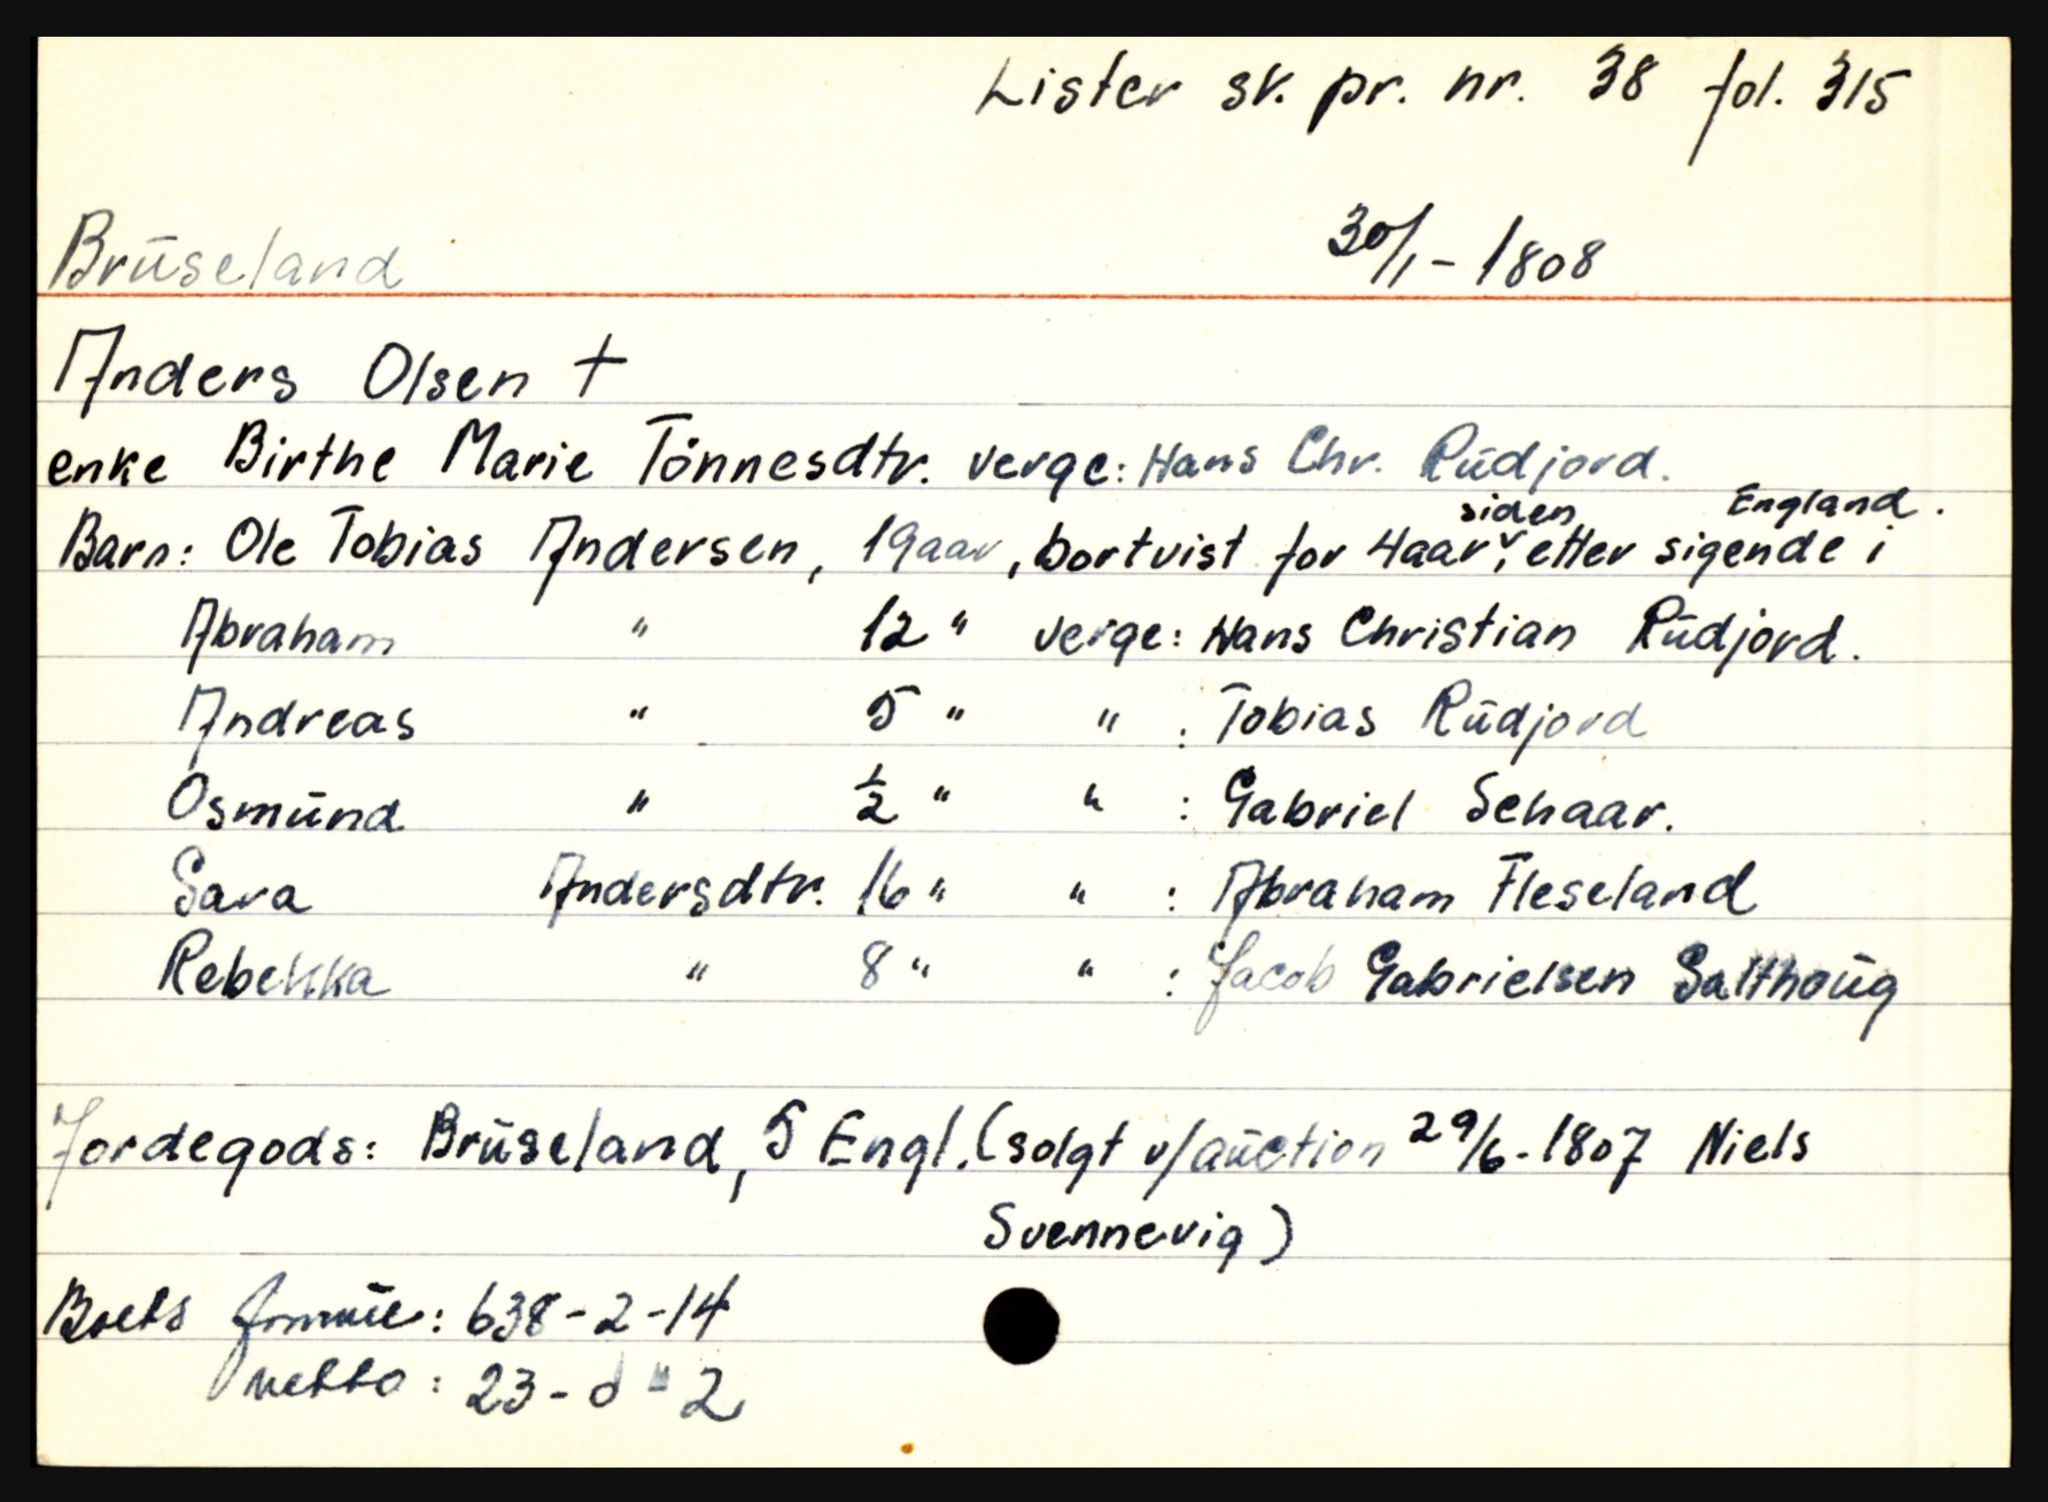 Lister sk. pr. nr. 38 fol. 315
Brüseland 30/1-1808
Anders Olsen †
enke Birthe Marie Tönnesdtr. verge: Hans Chr. Rüdjord.
Barn: Ole Tobias Andersen, 19 aar, bortvist for 4 aar siden, etter sigende i England.
Abraham " 12 " verge: Hans Christian Rüdjord.
Andreas " 5 " " : Tobias Rüdjord
Osmünd " ½ " " : Gabriel Schaar.
Sara Andersdtr. 16 " " : Abraham Fleseland
Rebekka " 8 " " : Jacob Gabrielsen Salthoüg
Jordegods: Brüseland, 5 Engl. (solgt v/ aüction 29/6-1807 Niels
Svennevig)
Boets formüe: 638-2-14
netto: 23-0-2